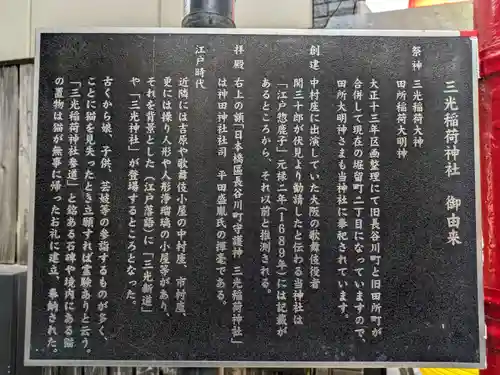 三光稲荷神社　御由来
祭神　三光稲荷大神
田所稲荷大明神
大正十三年区画整理にて旧長谷川町と旧田所町が
合併して現在の堀留町二丁目になっていますので、
田所大明神さまも当神社に奉祀されています。
創建　中村座に出演していた大阪の歌舞伎役者
関三十郎が伏見より勧請したと伝わる当神社は
「江戸惣鹿子」元禄二年(1689年)には記載が
あるところから、それ以前と推測される。
拝殿　右上の額「日本橋區長谷川町守護神　三光稲荷神社」
は神田神社社司　平田盛胤氏の揮毫である。
江戸時代
近隣には吉原や歌舞伎小屋の中村座、市村座、
更には操り人形や人形浄瑠璃の小屋等があり、
それを背景とした(江戸落語)に「三光新道」
や「三光神社」が登場するところとなった。
古くから娘、子供、芸妓等の参詣するものが多く、
ことに猫を見失ったとき立願すれば霊験ありと云う。
「三光稲荷神社参道」と銘ある石碑や境内にある猫
の置物は猫が無事に帰ったお礼に建立、奉納された。